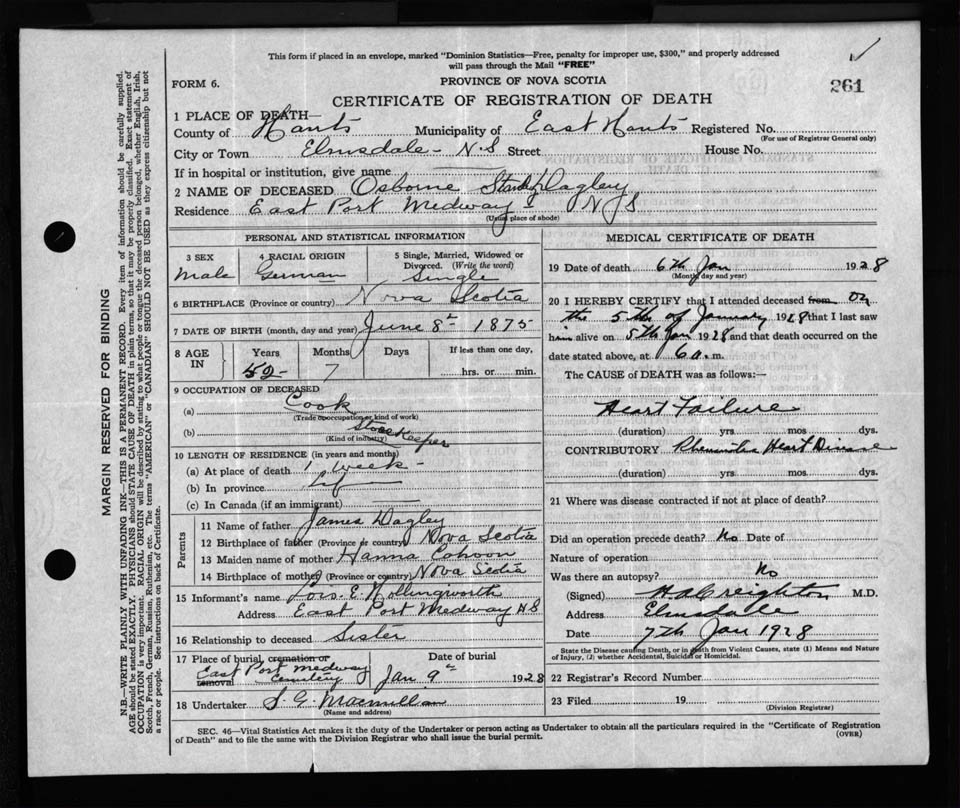 This form if placed in an envelope, marked "Dominion Statistics—Free, penalty for improper use, $300," and properly addressed
will pass through the Mail "FREE"
FORM 6.
PROVINCE OF NOVA SCOTIA
261
CERTIFICATE OF REGISTRATION OF DEATH
1 PLACE OF DEATH—
County of Hants Municipality of East Hants Registered No.
(For use of Registrar General only)
City or Town Elmsdale - N.S Street House No.
If in hospital or institution, give name
2 NAME OF DECEASED Osborne Dagley
Residence East Port Medway N S
(Usual place of abode)
PERSONAL AND STATISTICAL INFORMATION
3 SEX
Male
4 RACIAL ORIGIN
German
5 Single, Married, Widowed or
Divorced. (Write the word)
Single
6 BIRTHPLACE (Province or country) Nova Scotia
7 DATE OF BIRTH (month, day and year) June 8th 1875
8 AGE IN
Years Months Days If less than one day,
52 7 hrs. or min.
9 OCCUPATION OF DECEASED
(a) Cook
(Trade occupation or kind of work)
(b) Store Keeper
(Kind of industry)
10 LENGTH OF RESIDENCE (in years and months)
(a) At place of death 1 week -
(b) In province life
(c) In Canada (if an immigrant)
Parents
11 Name of father James Dagley
12 Birthplace of father (Province or country) Nova Scotia
13 Maiden name of mother Hanna Cohoon
14 Birthplace of mother (Province or country) Nova Scotia
15 Informant's name Lois. E. Hollingworth
Address East Port Medway N S
16 Relationship to deceased Sister
17 Place of burial, cremation or Date of burial
removal East Port Medway Cemetery Jan 9th 1928
18 Undertaker S. G. Macmillan
(Name and address)
MEDICAL CERTIFICATE OF DEATH
19 Date of death 6th Jan 1928
(Month, day and year)
20 I HEREBY CERTIFY that I attended deceased from on
the 5th of January 1928 that I last saw
him alive on 5th Jan 1928 and that death occurred on the
date stated above, at 6 a.m.
The CAUSE of DEATH was as follows:—
Heart Failure
(duration) yrs. mos. dys.
CONTRIBUTORY Heart Disease
(duration) yrs. mos. dys.
21 Where was disease contracted if not at place of death?
Did an operation precede death? No Date of
Nature of operation
Was there an autopsy? No
(Signed) H A Creighton M.D.
Address Elmsdale
Date 7th Jan 1928
State the Disease causing Death, or in death from Violent Causes, state (1) Means and Nature
of Injury, (2) whether Accidental, Suicidal or Homicidal.
22 Registrar's Record Number
23 Filed 19
(Division Registrar)
SEC. 46—Vital Statistics Act makes it the duty of the Undertaker or person acting as Undertaker to obtain all the particulars required in the "Certificate of Registration
of Death" and to file the same with the Division Registrar who shall issue the burial permit.
(OVER)
MARGIN RESERVED FOR BINDING
N.B.—WRITE PLAINLY WITH UNFADING INK—THIS IS A PERMANENT RECORD. Every item of information should be carefully supplied.
AGE should be stated EXACTLY. PHYSICIANS should STATE CAUSE OF DEATH in plain terms, so that it may be properly classified. Exact statement of
OCCUPATION is very important. RACIAL ORIGIN will be described by stating to what people or tongue the deceased person belonged, whether English, Irish,
Scotch, French, German, Russian, Ruthenian, etc. The terms "AMERICAN" or "CANADIAN" SHOULD NOT BE USED as they express citizenship but not
a race or people. See instructions on back of Certificate.